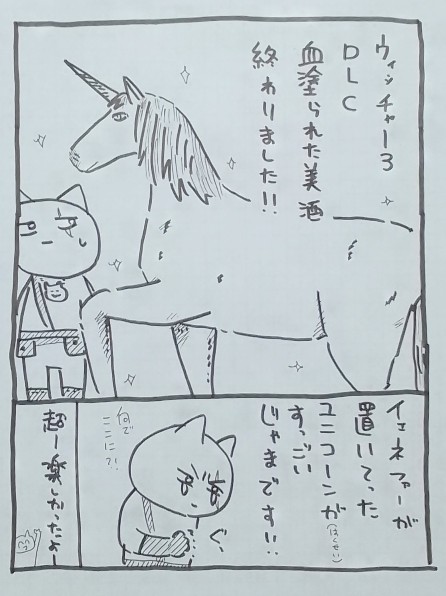 ウィッチャー3
DLC
血塗られた美酒
終わりました!!
イェネファーが
置いてった
ユニコーンが
(はくせい)
すっごい
じゃまです!!
ぐ、
何で
ここに?!
超ー楽しかったよー